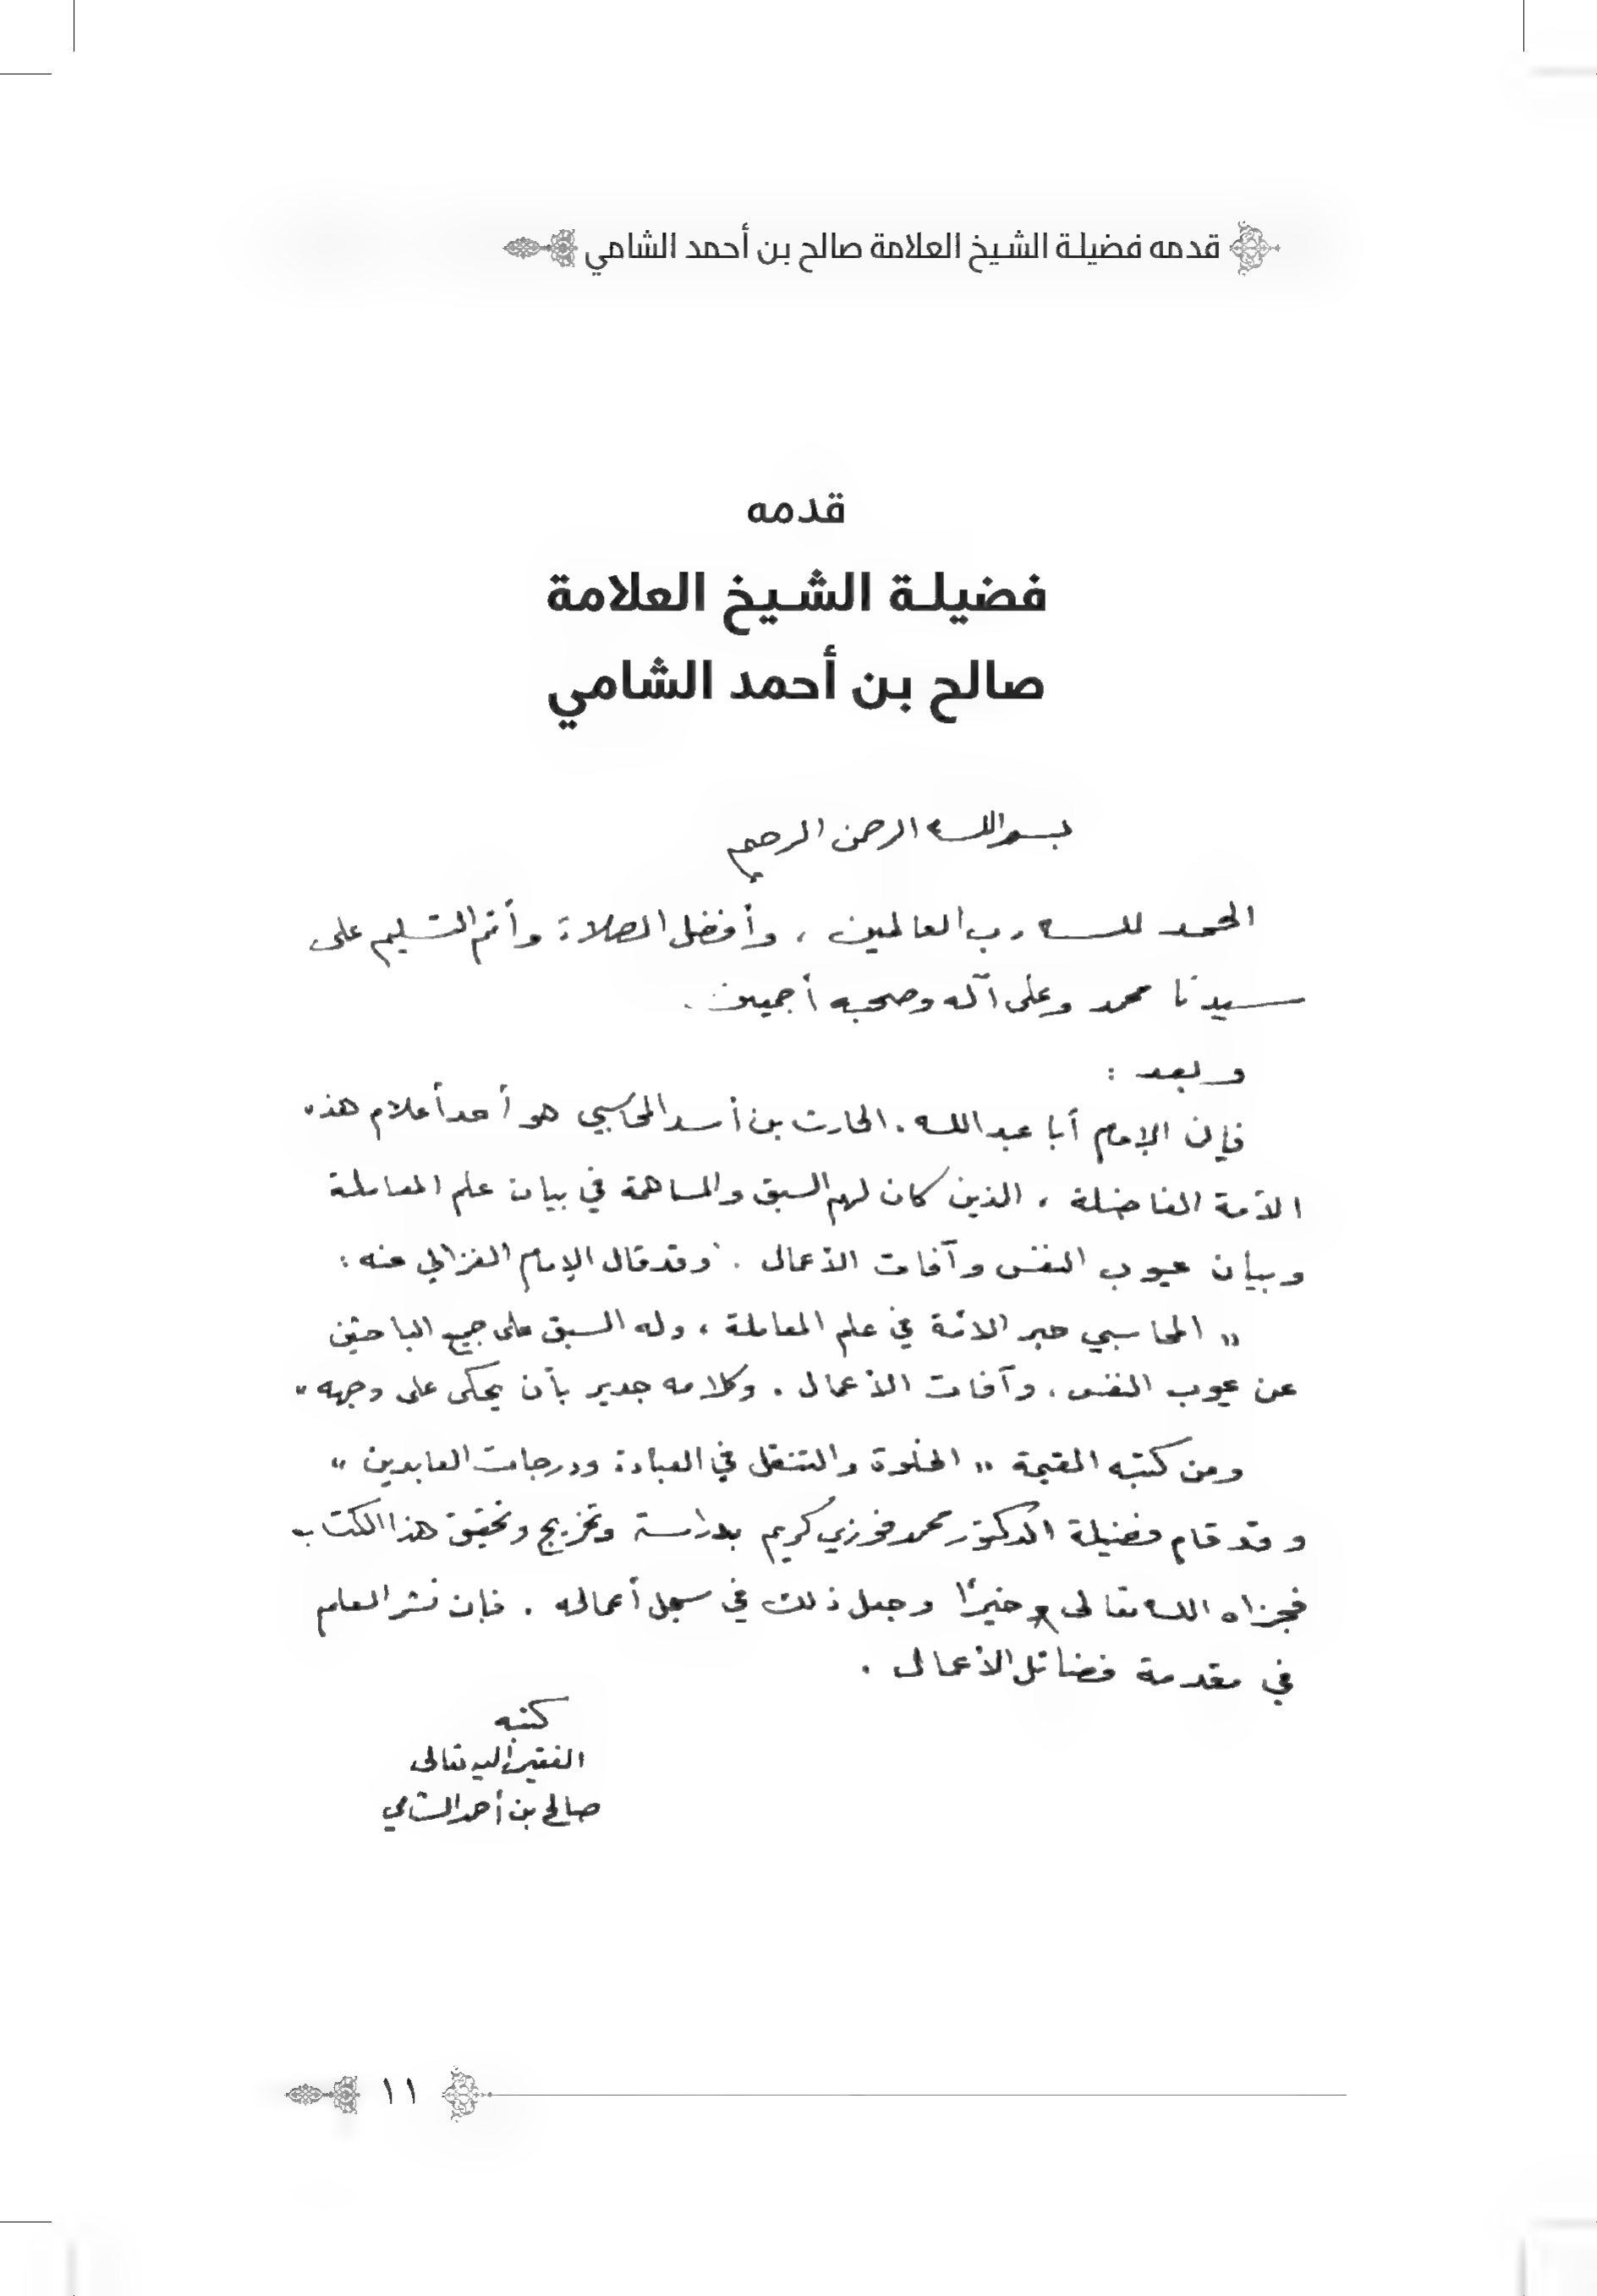 قدمه فضيلة الشيخ العلامة صالح بن أحمد الشامي
قدمه
فضيلة الشيخ العلامة
صالح بن أحمد الشامي
بسم الله الرحمن الرحيم
الحمد لله رب العالمين ، وأفضل الصلاة وأتم التسليم على
سيدنا محمد وعلى آله وصحبه أجمعين .
وبعد :
فإن الإمام أبا عبد الله . الحارث بن أسد المحاسبي هو أحد أعلام هذه
الأمة الفاضلة ، الذين كان لهم السبق والمساهمة في بيان علم المعاملة
وبيان عيوب النفس وآفات الأعمال . وقد قال الإمام الغزالي عنه :
" المحاسبي حبر الأمة في علم المعاملة ، وله السبق على جميع الباحثين
عن عيوب النفس ، وآفات الأعمال . وكلامه جدير بأن يحكى على وجهه "
ومن كتبه القيمة " الخلوة والتنقل في العبادة ودرجات العابدين "
وقد قام فضيلة الدكتور محمد فوزي كريم بدراسة وتخريج وتحقيق هذا الكتاب
فجزاه الله تعالى خيرًا وجعل ذلك في سجل أعماله . فإن نشر العلم
في مقدمة فضائل الأعمال .
كتبه
الفقير إليه تعالى
صالح بن أحمد الشامي
١١